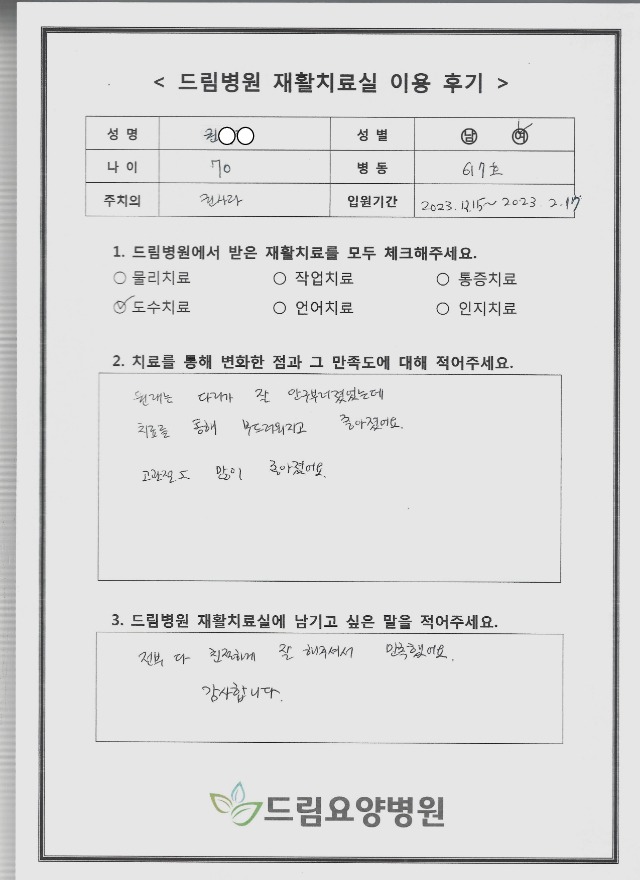 < 드림병원 재활치료실 이용 후기 >
성 명 권○○ 성 별 남 여
나 이 70 병 동 617호
주치의 권사라 입원기간 2023.12.15~2023.2.17
1. 드림병원에서 받은 재활치료를 모두 체크해주세요.
○ 물리치료 ○ 작업치료 ○ 통증치료
○ 도수치료 ○ 언어치료 ○ 인지치료
2. 치료를 통해 변화한 점과 그 만족도에 대해 적어주세요.
원래는 다리가 잘 안구부러졌었는데
치료를 통해 부드러워지고 좋아졌어요.
고관절도 많이 좋아졌어요.
3. 드림병원 재활치료실에 남기고 싶은 말을 적어주세요.
전부 다 친절하게 잘 해주셔서 만족했어요.
감사합니다.
드림요양병원